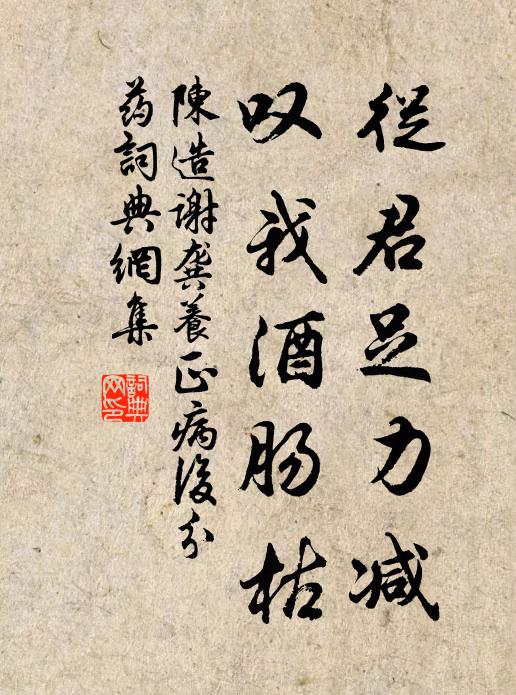 從君足力減
叹我酒肠枯
陳造謝龔養正病後分
药詞典網集
詞典網印